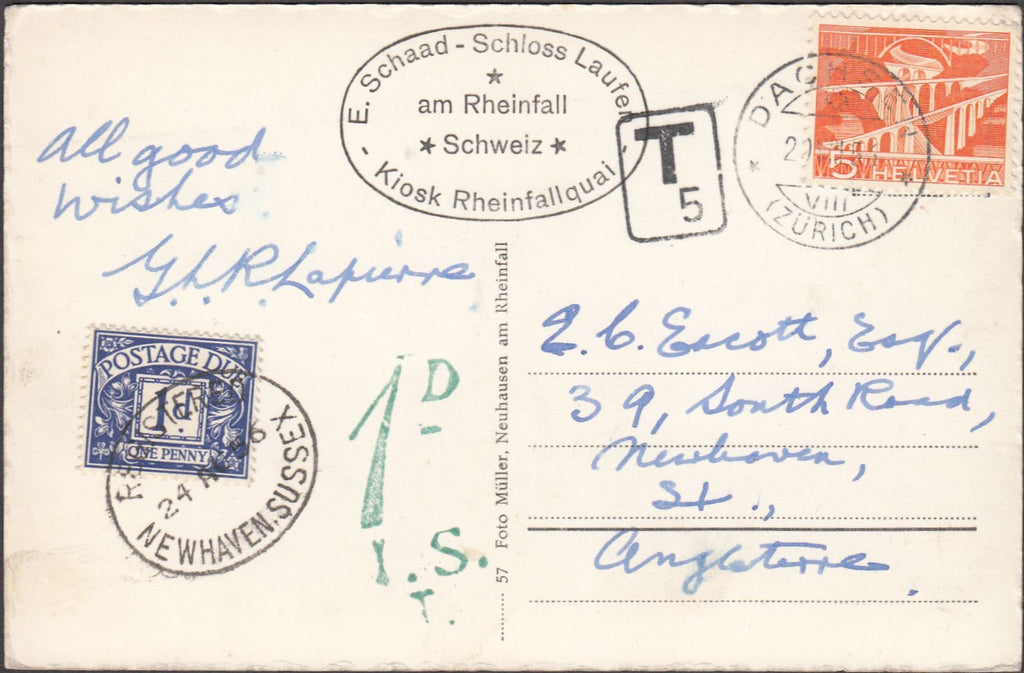 E. Schaad - Schloss Laufen
am Rheinfall
Schweiz
- Kiosk Rheinfallquai -
T
5
DACHSEN
VIII
(ZÜRICH)
5 HELVETIA
All good
wishes
G.L.R. Lapierre
POSTAGE DUE
1d.
ONE PENNY
24
NEWHAVEN. SUSSEX
1D
I.S.
T.
57 Foto Müller, Neuhausen am Rheinfall
E. C. Escott, Esq.,
39, South Road,
Newhaven,
Sx.,
Angleterre